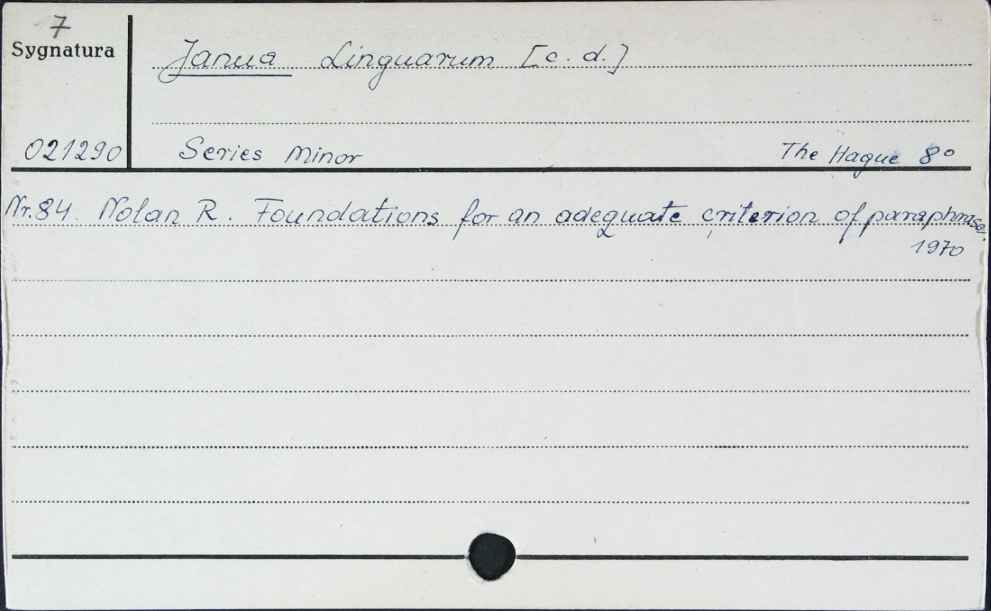 7
Sygnatura
Janua Linguarum [c. d.]
021290
Series Minor The Hague 8°
Nr. 84. Nolan R. Foundations for an adequate criterion of paraphrase.
1970